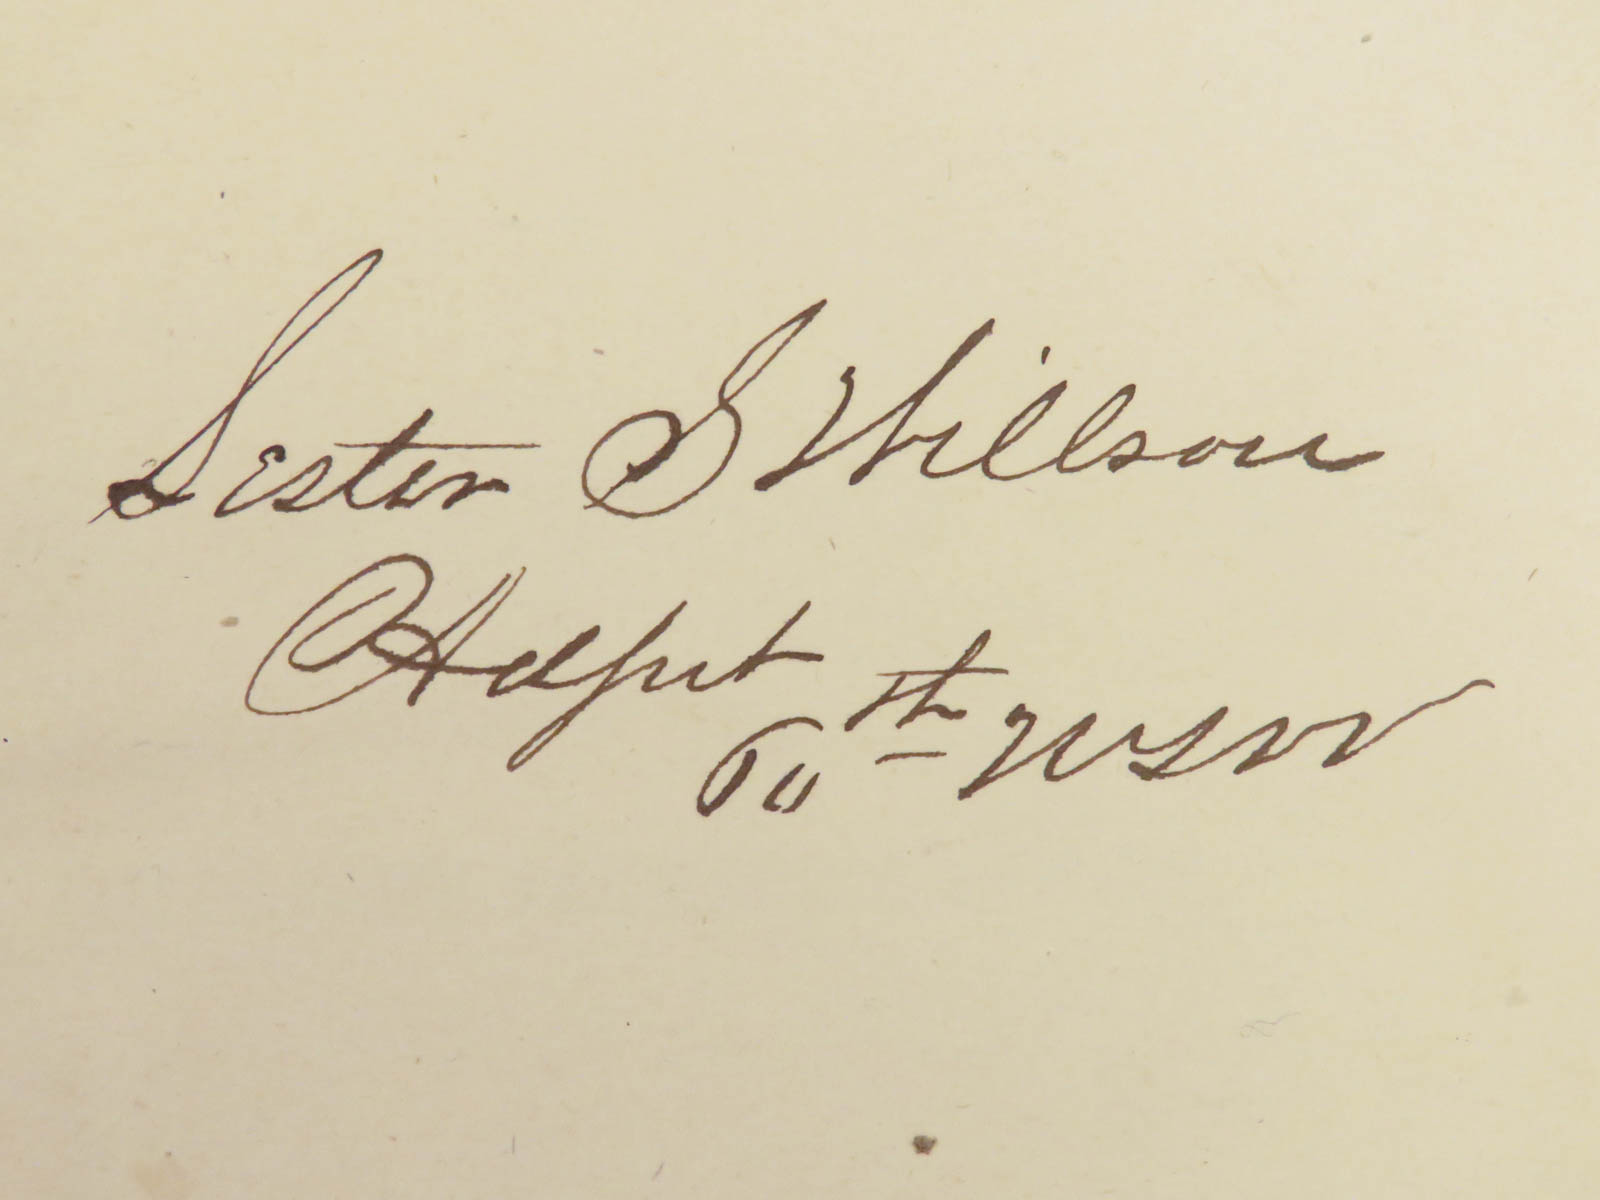 Lester S Willson
Adjut
60th NYVV